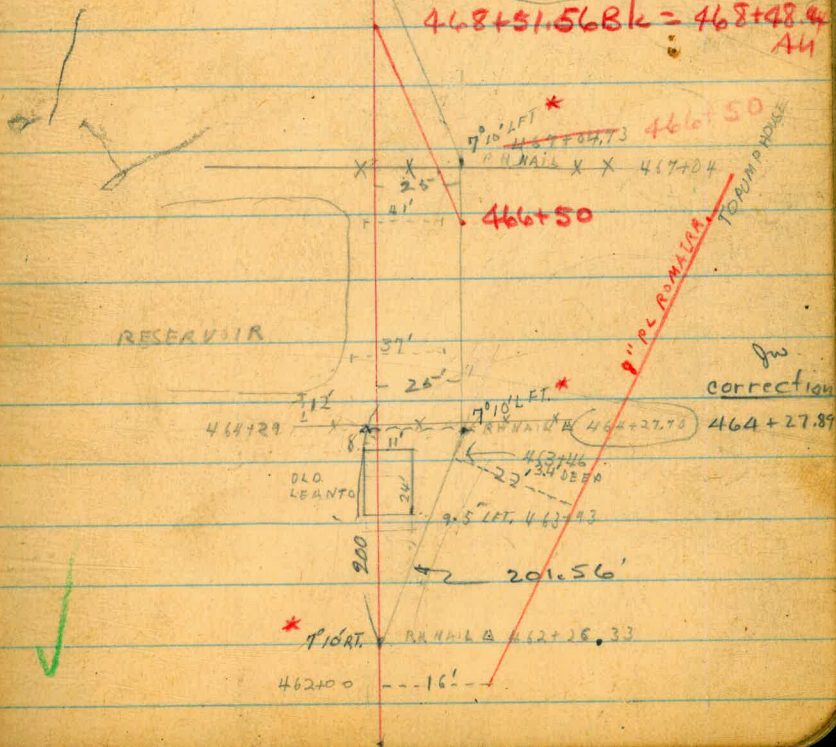 468+51.56Bk = 468+48.94
AH
7°10' LFT *
467+04.73 466+50
P.H. NAIL X X 467+04
X X
25'
41'
466+50
TO PUMP HOUSE
8" P.L. ROMA IRR.
RESERVOIR
37'
25'
correction
12'
7°10' LFT. *
464+29 X X
R.H. NAIL 464+27.78 464+27.89
8' 11'
463+46
OLD
LEANTO
24'
22' 3.4' DEEP
9.5' LFT. 463+43
200
201.56'
*
7°10' RT. R.H. NAIL 462+26.33
462+00 16'